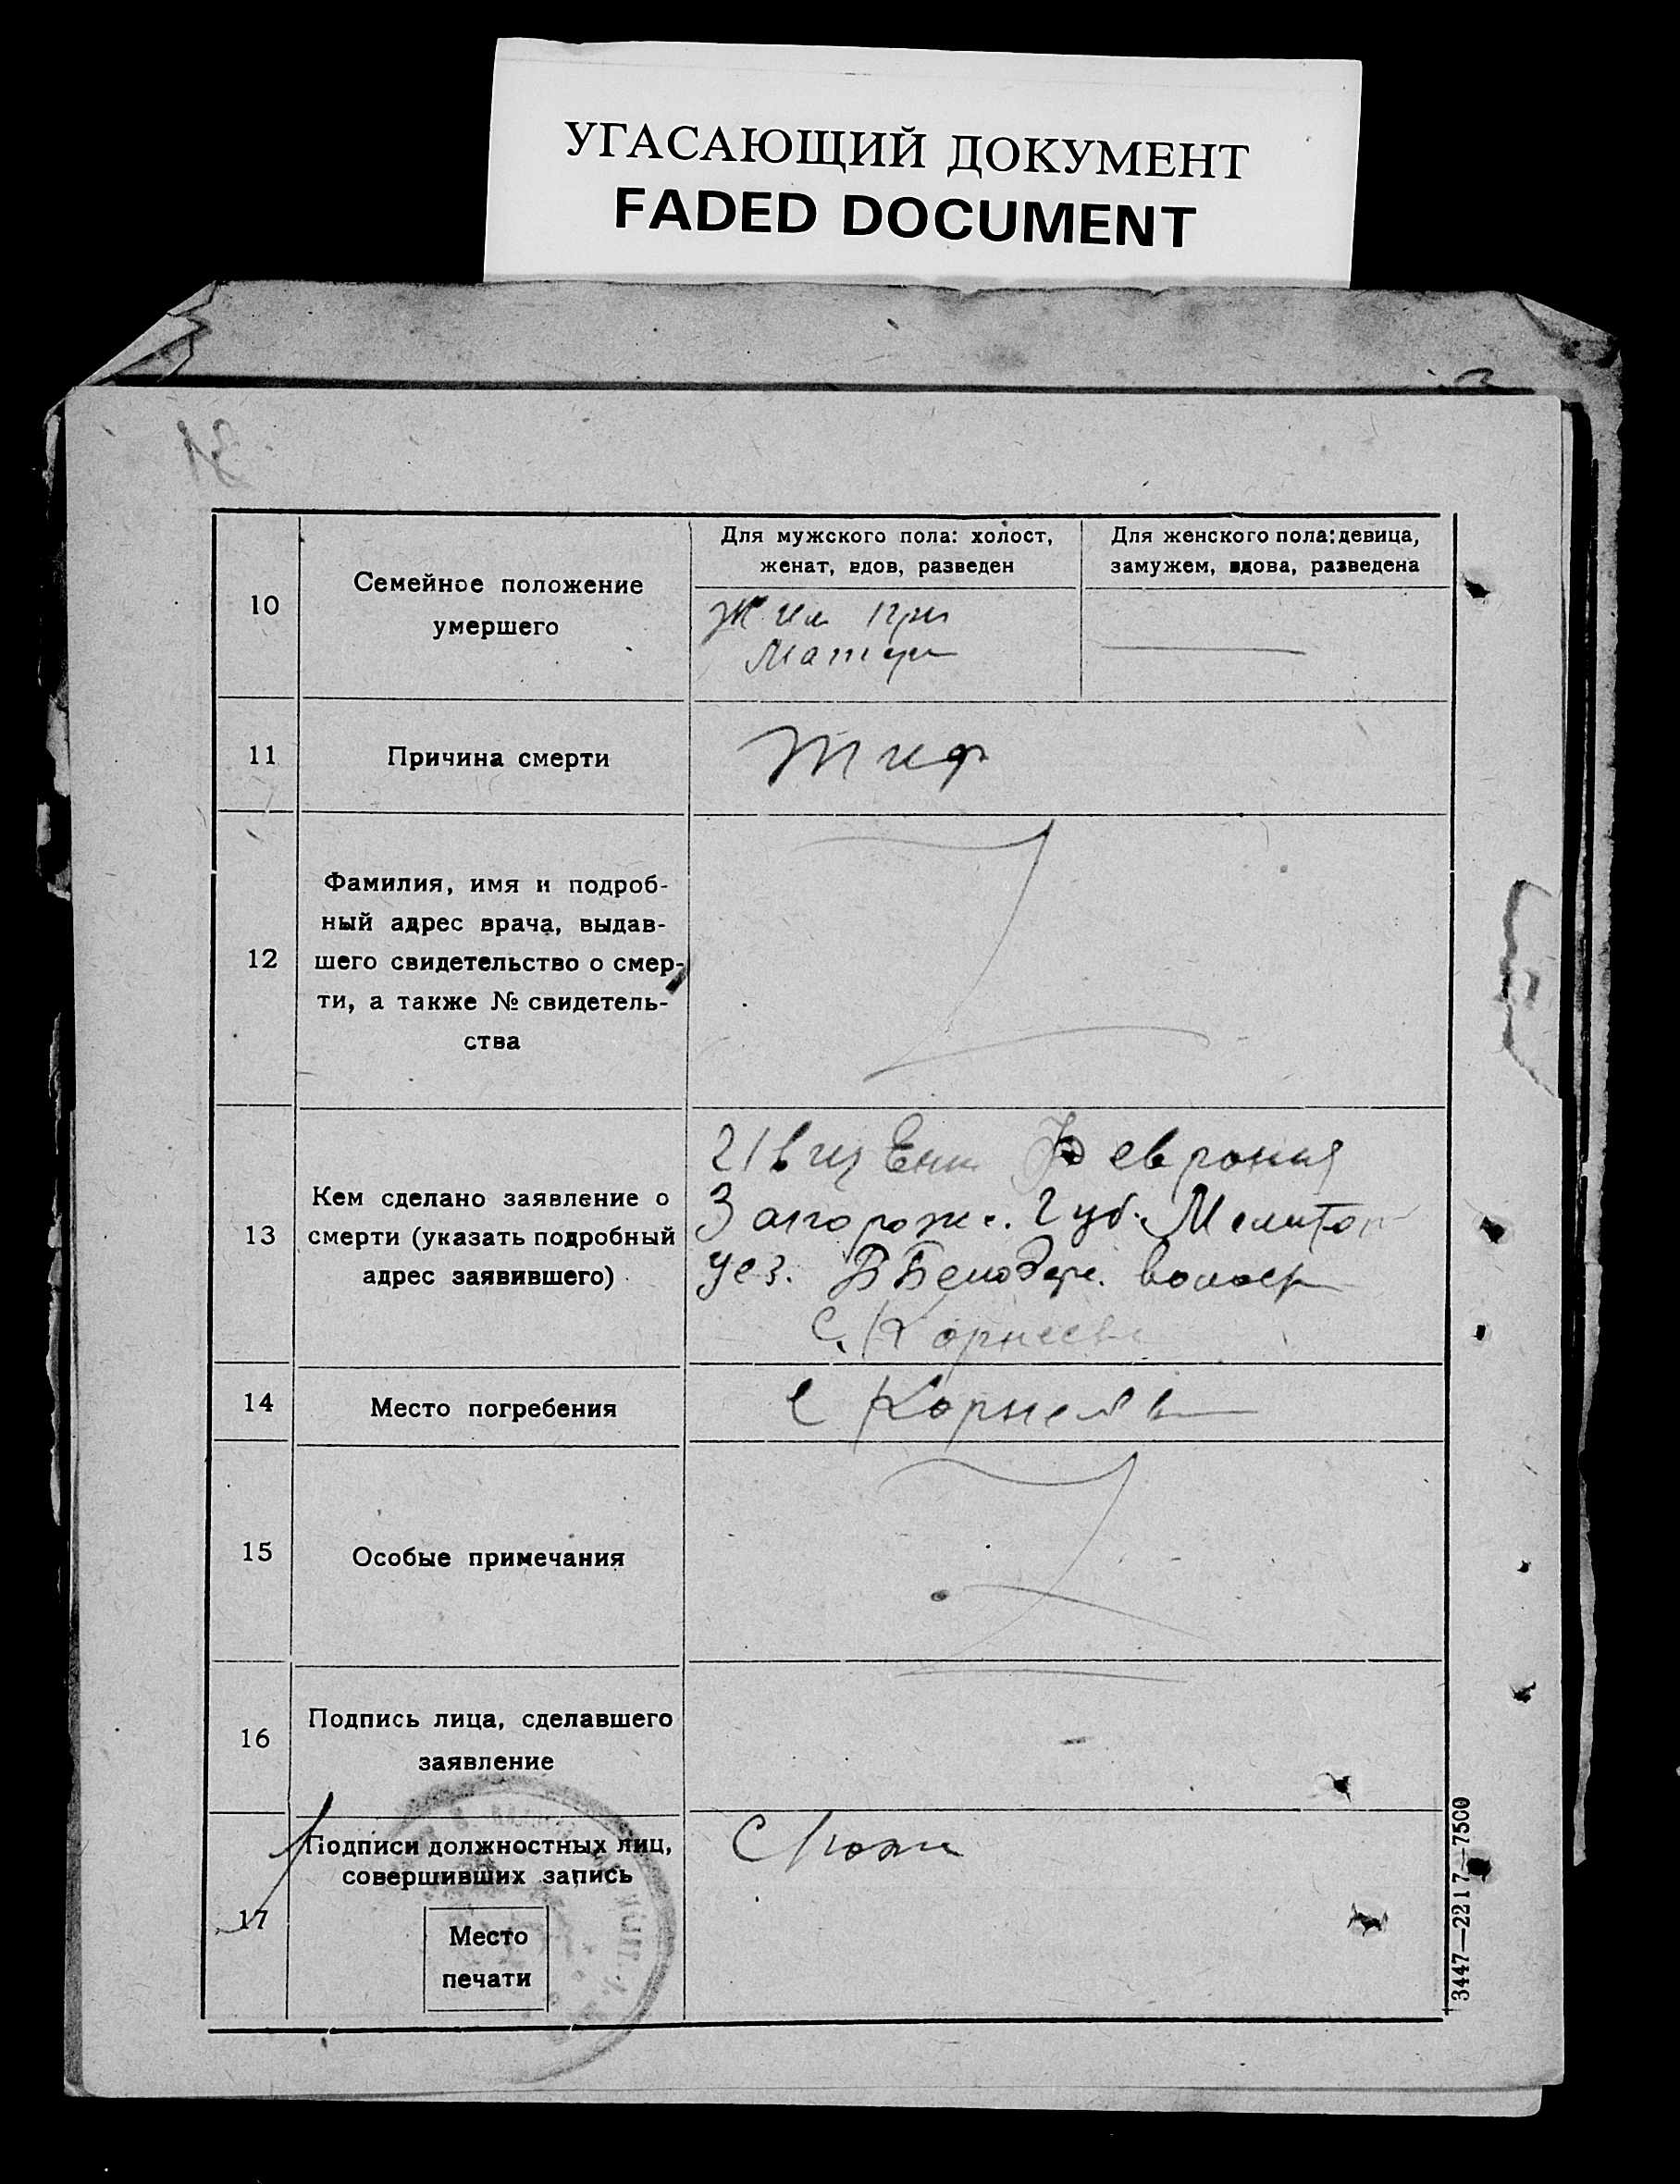 УГАСАЮЩИЙ ДОКУМЕНТ
FADED DOCUMENT
31
10
Семейное положение
умершего
Для мужского пола: холост,
женат, вдов, разведен
Для женского пола: девица,
замужем, вдова, разведена
Жил при
Матери
11
Причина смерти
Тиф
12
Фамилия, имя и подроб-
ный адрес врача, выдав-
шего свидетельство о смер-
ти, а также № свидетель-
ства
13
Кем сделано заявление о
смерти (указать подробный
адрес заявившего)
Феврония
Запорож. Губ. Мелитоп
уез. ВБелозер. волост
С. Корнеев
14
Место погребения
С Корнеев
15
Особые примечания
16
Подпись лица, сделавшего
заявление
17
Подписи должностных лиц,
совершивших запись
Место
печати
3447—2217—7500